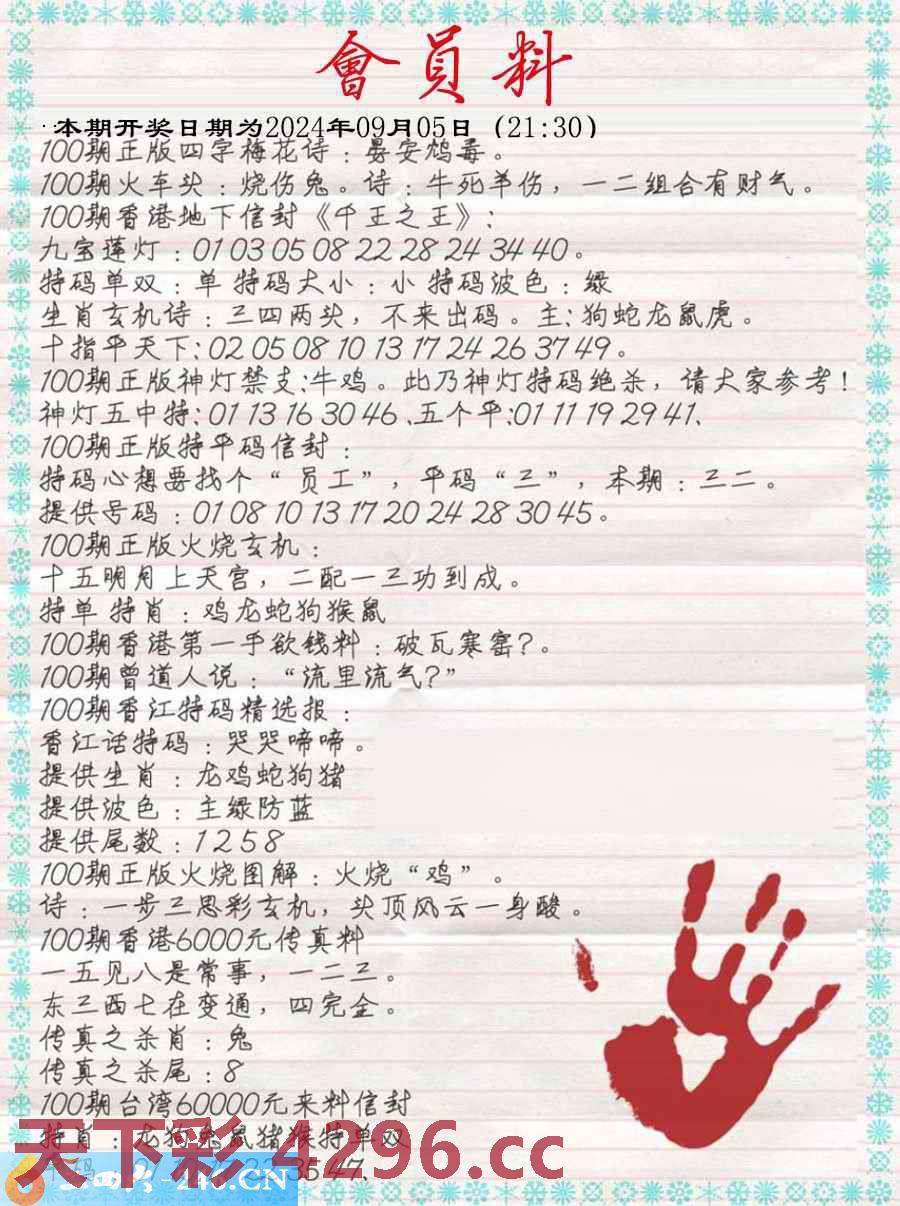 會員料
·本期开奖日期为2024年09月05日（21:30）
100期正版四字梅花诗：晏安鸩毒。
100期火车头：烧伤兔。诗：牛死羊伤，一二组合有财气。
100期香港地下信封《千王之王》：
九宝莲灯：01 03 05 08 22 28 24 34 40。
特码单双：单 特码大小：小 特码波色：绿
生肖玄机诗：三四两头，不来出码。主：狗蛇龙鼠虎。
十指平天下：02 05 08 10 13 17 24 26 37 49。
100期正版神灯禁支：牛鸡。此乃神灯特码绝杀，请大家参考！
神灯五中特：01 13 16 30 46、五个平：01 11 19 29 41、
100期正版特平码信封：
特码心想要找个“员工”，平码“三”，本期：三二。
提供号码：01 08 10 13 17 20 24 28 30 45。
100期正版火烧玄机：
十五明月上天宫，二配一三功到成。
特单 特肖：鸡龙蛇狗猴鼠
100期香港第一手欲钱料：破瓦寒窑？。
100期曾道人说：“流里流气？”
100期香江特码精选报：
香江话特码：哭哭啼啼。
提供生肖：龙鸡蛇狗猪
提供波色：主绿防蓝
提供尾数：1 2 5 8
100期正版火烧图解：火烧“鸡”。
诗：一步三思彩玄机，头顶风云一身酸。
100期香港6000元传真料
一五见八是常事，一二三。
东三西七在变通，四完全。
传真之杀肖：兔
传真之杀尾：8
100期台湾60000元来料信封
特肖：龙狗兔鼠猪猴特单双
天下彩 4296.cc
35 47、
-246.CN